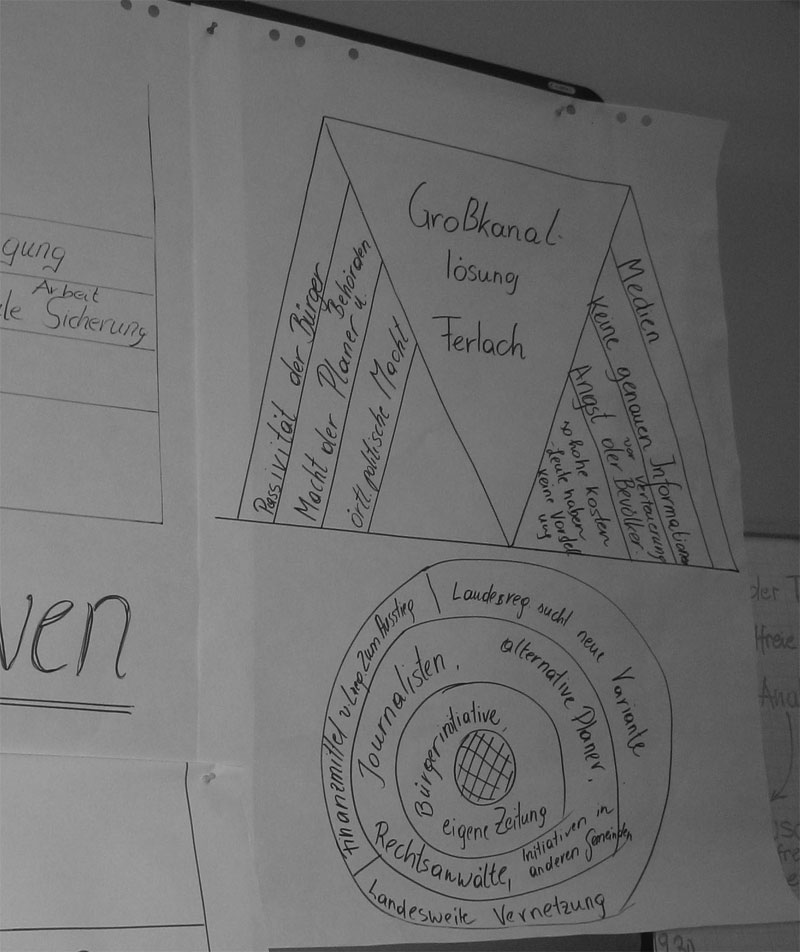 gung
Arbeit
le Sicherung
ven
Großkanal-
lösung
Ferlach
Passivität der Bürger
Macht der Planer u.
Behörden
örtl. politische Macht
Medien
keine genauen Informationen
Angst der Bevölker.
vor Verteuerung
so hohe Kosten
Leute haben
keine Vorstell
ung
Landesreg. sucht neue Variante
Finanzmittel v. Lreg. zum Ausstieg
Landesweite Vernetzung
Journalisten,
alternative Planer,
Rechtsanwälte,
Initiativen in
anderen Gemeinden
Bürgerinitiative,
eigene Zeitung
der
freie